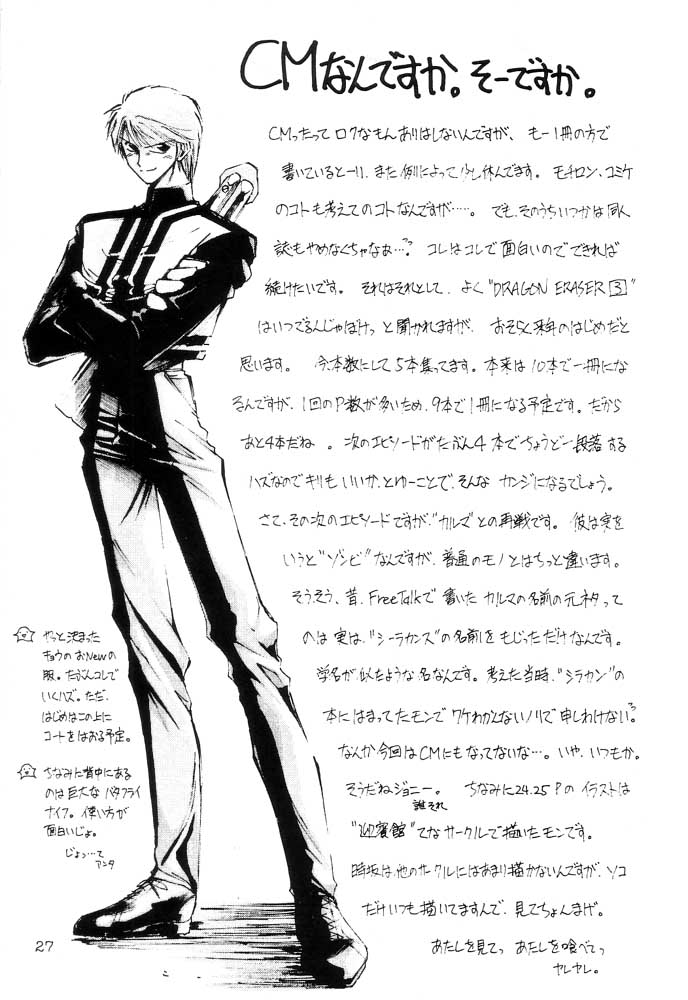 CMなんですか。そーですか。
CMったって ロクなもんありはしないんですが、もー1冊の方で
書いているとーり、また例によって少し休んでます。モチロン、コミケ
のコトも考えてのコトなんですが……。でも、そのうちいつかは同人
誌もやめなくちゃなぁ…?コレはコレで面白いのでできれば
続けたいです。それはそれとして、よく"DRAGON ERASER 3"
はいつでるんじゃぼけっと聞かれますが、おそらく来年のはじめだと
思います。今、本数にして5本集ってます。本来は10本で一冊にな
るんですが、1回のP数が多いため、9本で1冊になる予定です。だから
あと4本だね。次のエピソードがたぶん4本でちょうど一段落する
ハズなのでキリもいいか、とゆーことで、そんなカンジになるでしょう。
さて、その次のエピソードですが、"カルマ"との再戦です。彼は実を
いうと"ゾンビ"なんですが、普通のモノとはちっと違います。
そうそう、昔、FreeTalkで書いたカルマの名前の元ネタって
のは実は、"シーラカンス"の名前をもじっただけなんです。
学名が似たような名なんです。考えた当時、"シラカン"の
本にはまってたモンでワケわかんないノリで申しわけない?
なんか今回はCMにもなってないな…。いや、いつもか。
そうだねジョニー。ちなみに24.25Pのイラストは
誰それ
"迎賓館"てなサークルで描いたモンです。
時坂は、他のサークルにはあまり描かないんですが、ソコ
だけいつも描いてますんで、見てちょんまげ。
あたしを見てっ あたしを喰べてっ
ヤレヤレ。
やっと決まった
キョウのおNewの
服。たぶんコレで
いくハズ。ただ、
はじめはこの上に
コートをはおる予定。
ちなみに背中にある
のは巨大なバタフライ
ナイフ。使い方が
面白いじょ。
じょっ…て
アンタ
27